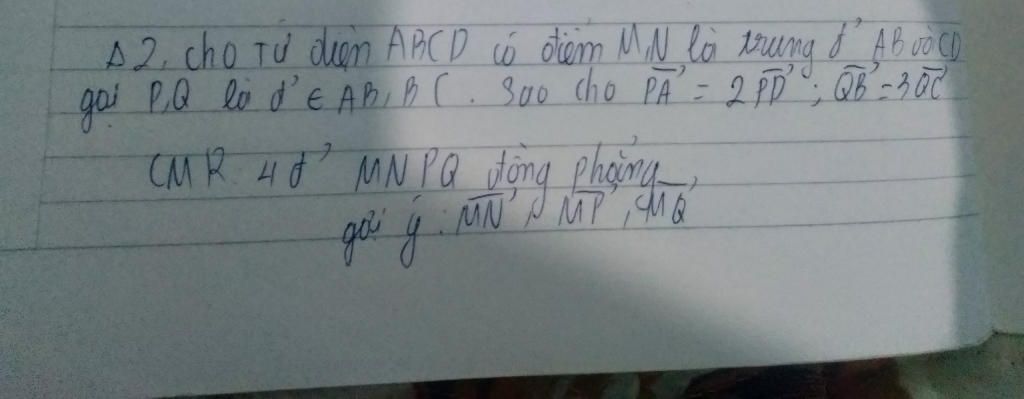 Δ2, cho Tứ diện ABCD có điểm M,N là trung đ' AB và CD
gọi P,Q là đ' ∈ AB, BC. Sao cho \overrightarrow{PA} = 2\overrightarrow{PD} ; \overrightarrow{QB} = 3\overrightarrow{QC}
CMR 4 đ' MNPQ đồng phẳng
gợi ý : \overrightarrow{MN}, \overrightarrow{MP}, \overrightarrow{MQ}